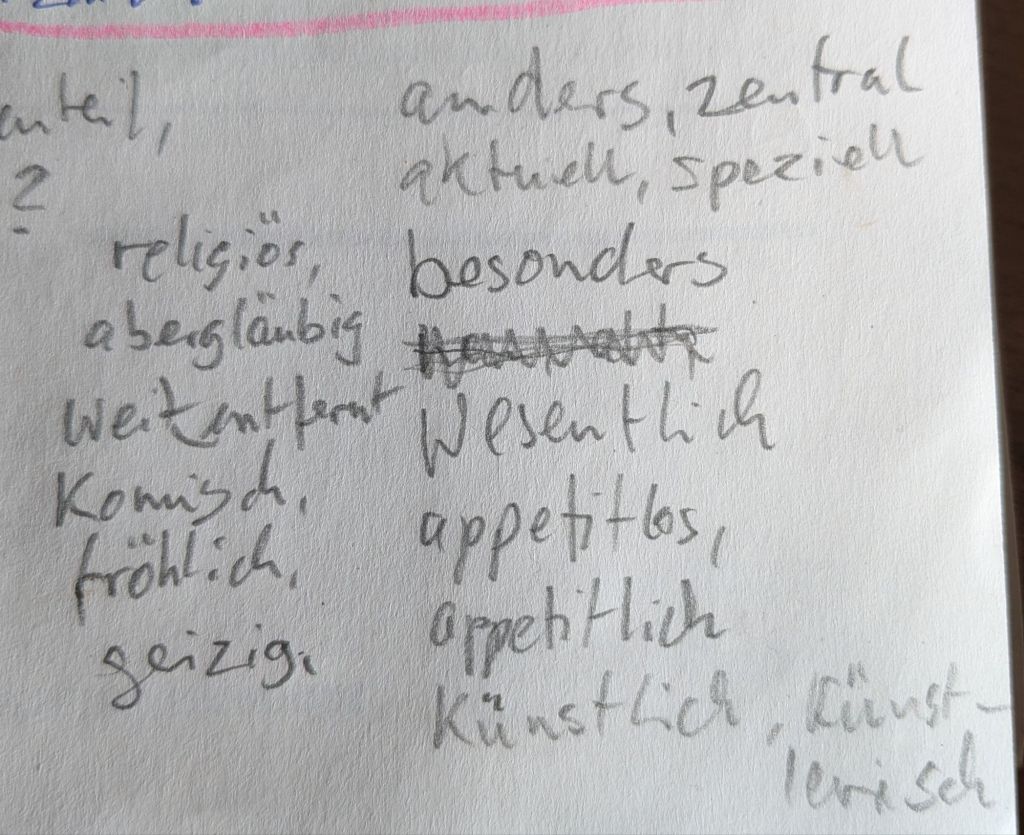 anteil,
2
religiös,
abergläubig
weit entfernt
Komisch,
fröhlich,
geizig,
anders, zentral
aktuell, speziell
besonders
Wesentlich
appetitlos,
appetitlich
Künstlich, Künst-
lerisch